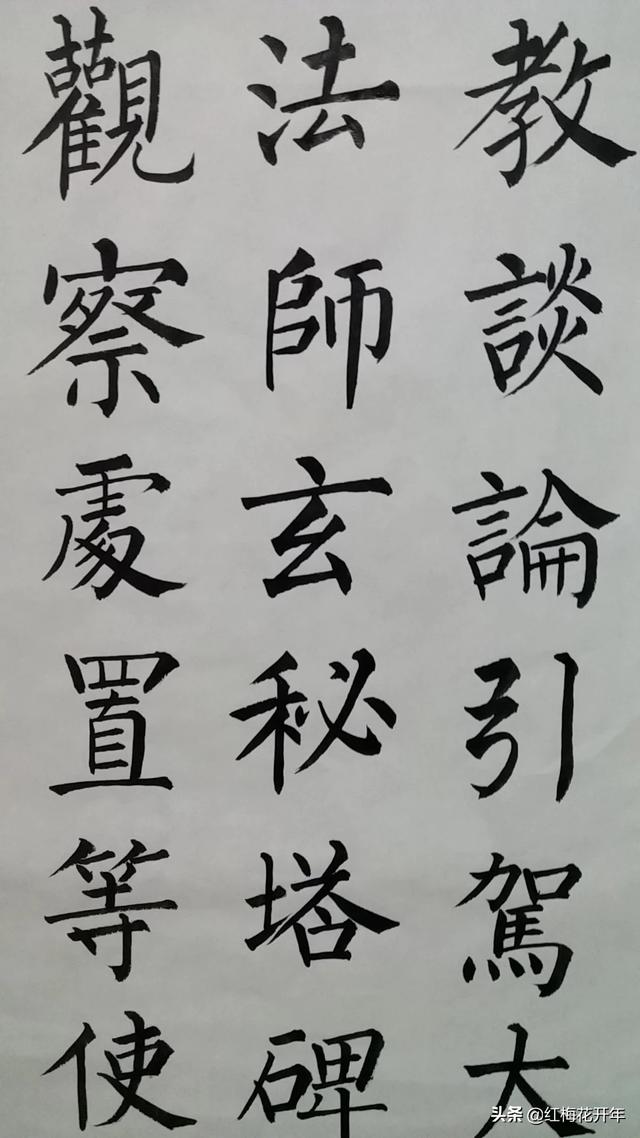 教談論引駕大
法師玄秘塔碑
觀察處置等使
头条 @红梅花开年